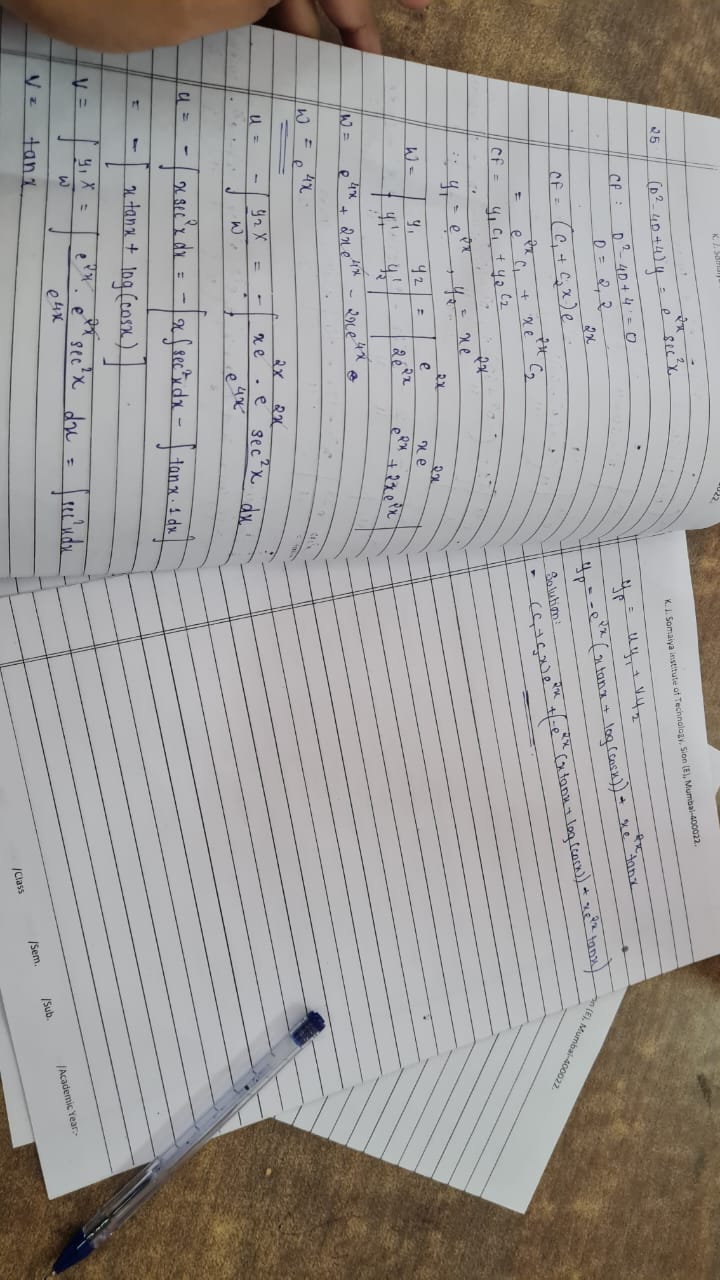 K. J. Somaiya
25 (D² - 4D + 4) y = e²ˣ sec²x
CF : D² - 4D + 4 = 0
D = 2, 2
CF = (c₁ + c₂x) e²ˣ
= e²ˣ c₁ + xe²ˣ c₂
CF = y₁c₁ + y₂c₂
∴ y₁ = e²ˣ, y₂ = xe²ˣ
W = | y₁ y₂ | = | e²ˣ xe²ˣ |
| y₁' y₂' | | 2e²ˣ e²ˣ + 2xe²ˣ |
W = e⁴ˣ + 2xe⁴ˣ - 2xe⁴ˣ
W = e⁴ˣ.
u = - ∫ y₂X / W = - ∫ xe²ˣ . e²ˣ sec²x / e⁴ˣ . dx
u = - ∫ x sec²x dx = - [ x ∫ sec²x dx - ∫ tanx . 1 dx ]
= - [ x tanx + log(cosx) ]
V = ∫ y₁X / W = ∫ e²ˣ . e²ˣ sec²x / e⁴ˣ dx = ∫ sec²x dx
V = tanx
K. J. Somaiya Institute of Technology, Sion (E), Mumbai-400022.
yp = uy₁ + Vy₂
yp = -e²ˣ (x tanx + log(cosx)) + xe²ˣ tanx
Solution:
(c₁ + c₂x) e²ˣ + (-e²ˣ (x tanx + log(cosx)) + xe²ˣ tanx)
/Class /Sem. /Sub. /Academic Year:-
(E), Mumbai-400022.